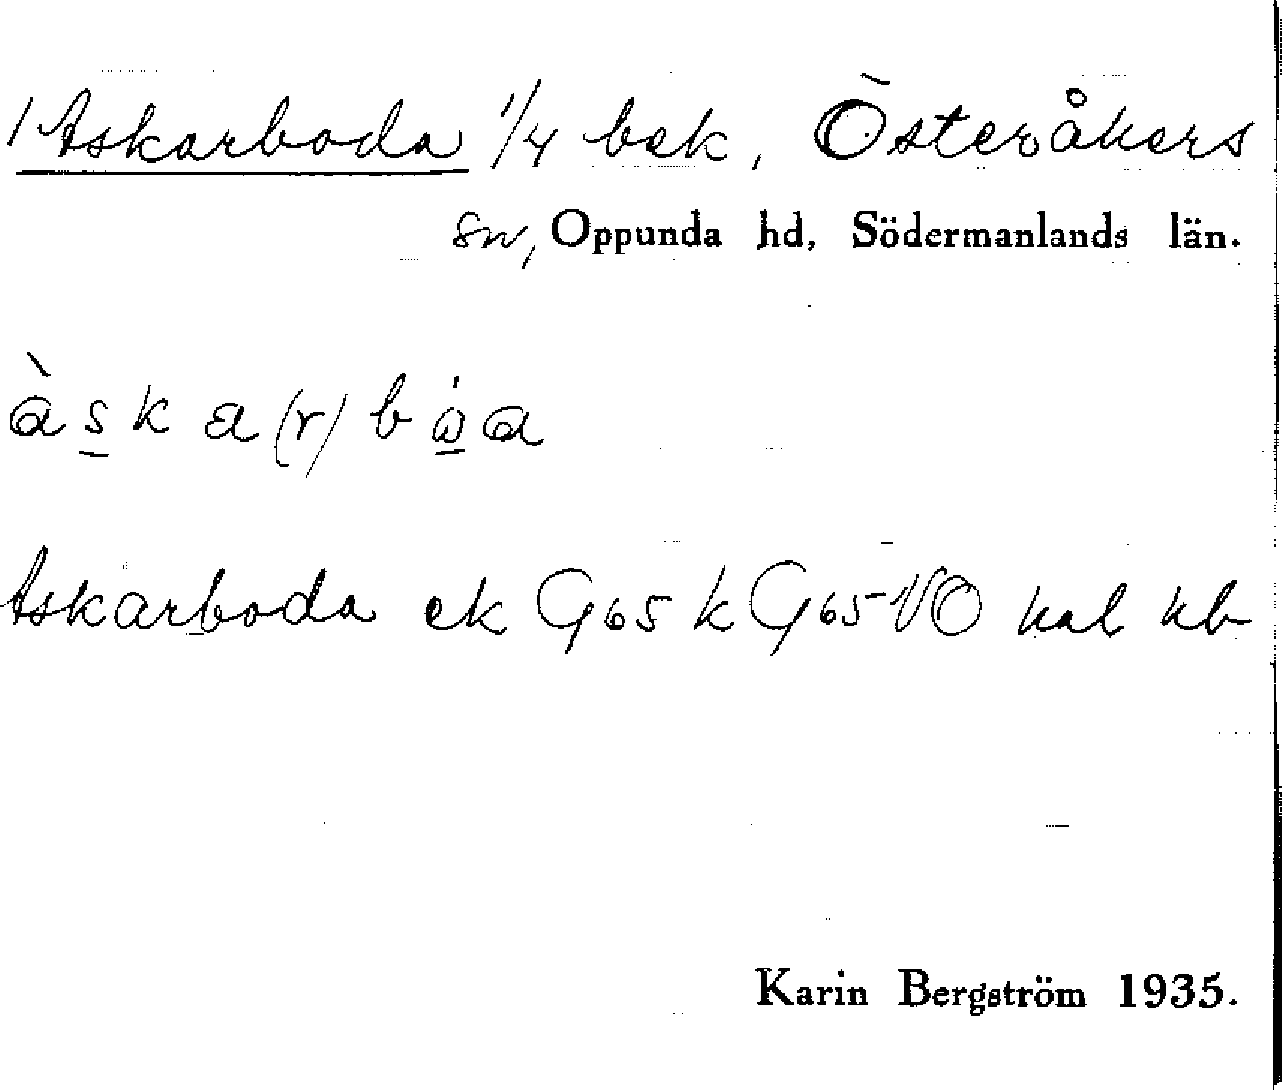 1 Askarboda 1/4 bek, Österåkers
sn, Oppunda hd, Södermanlands län.
àska(r)bωa
Askarboda ek G65 k G65-VO kal kb
Karin Bergström 1935.